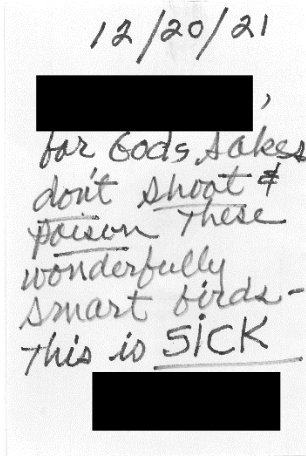 12/20/21
,
for Gods sakes
don't shoot &
poison These
wonderfully
smart birds -
This is SICK